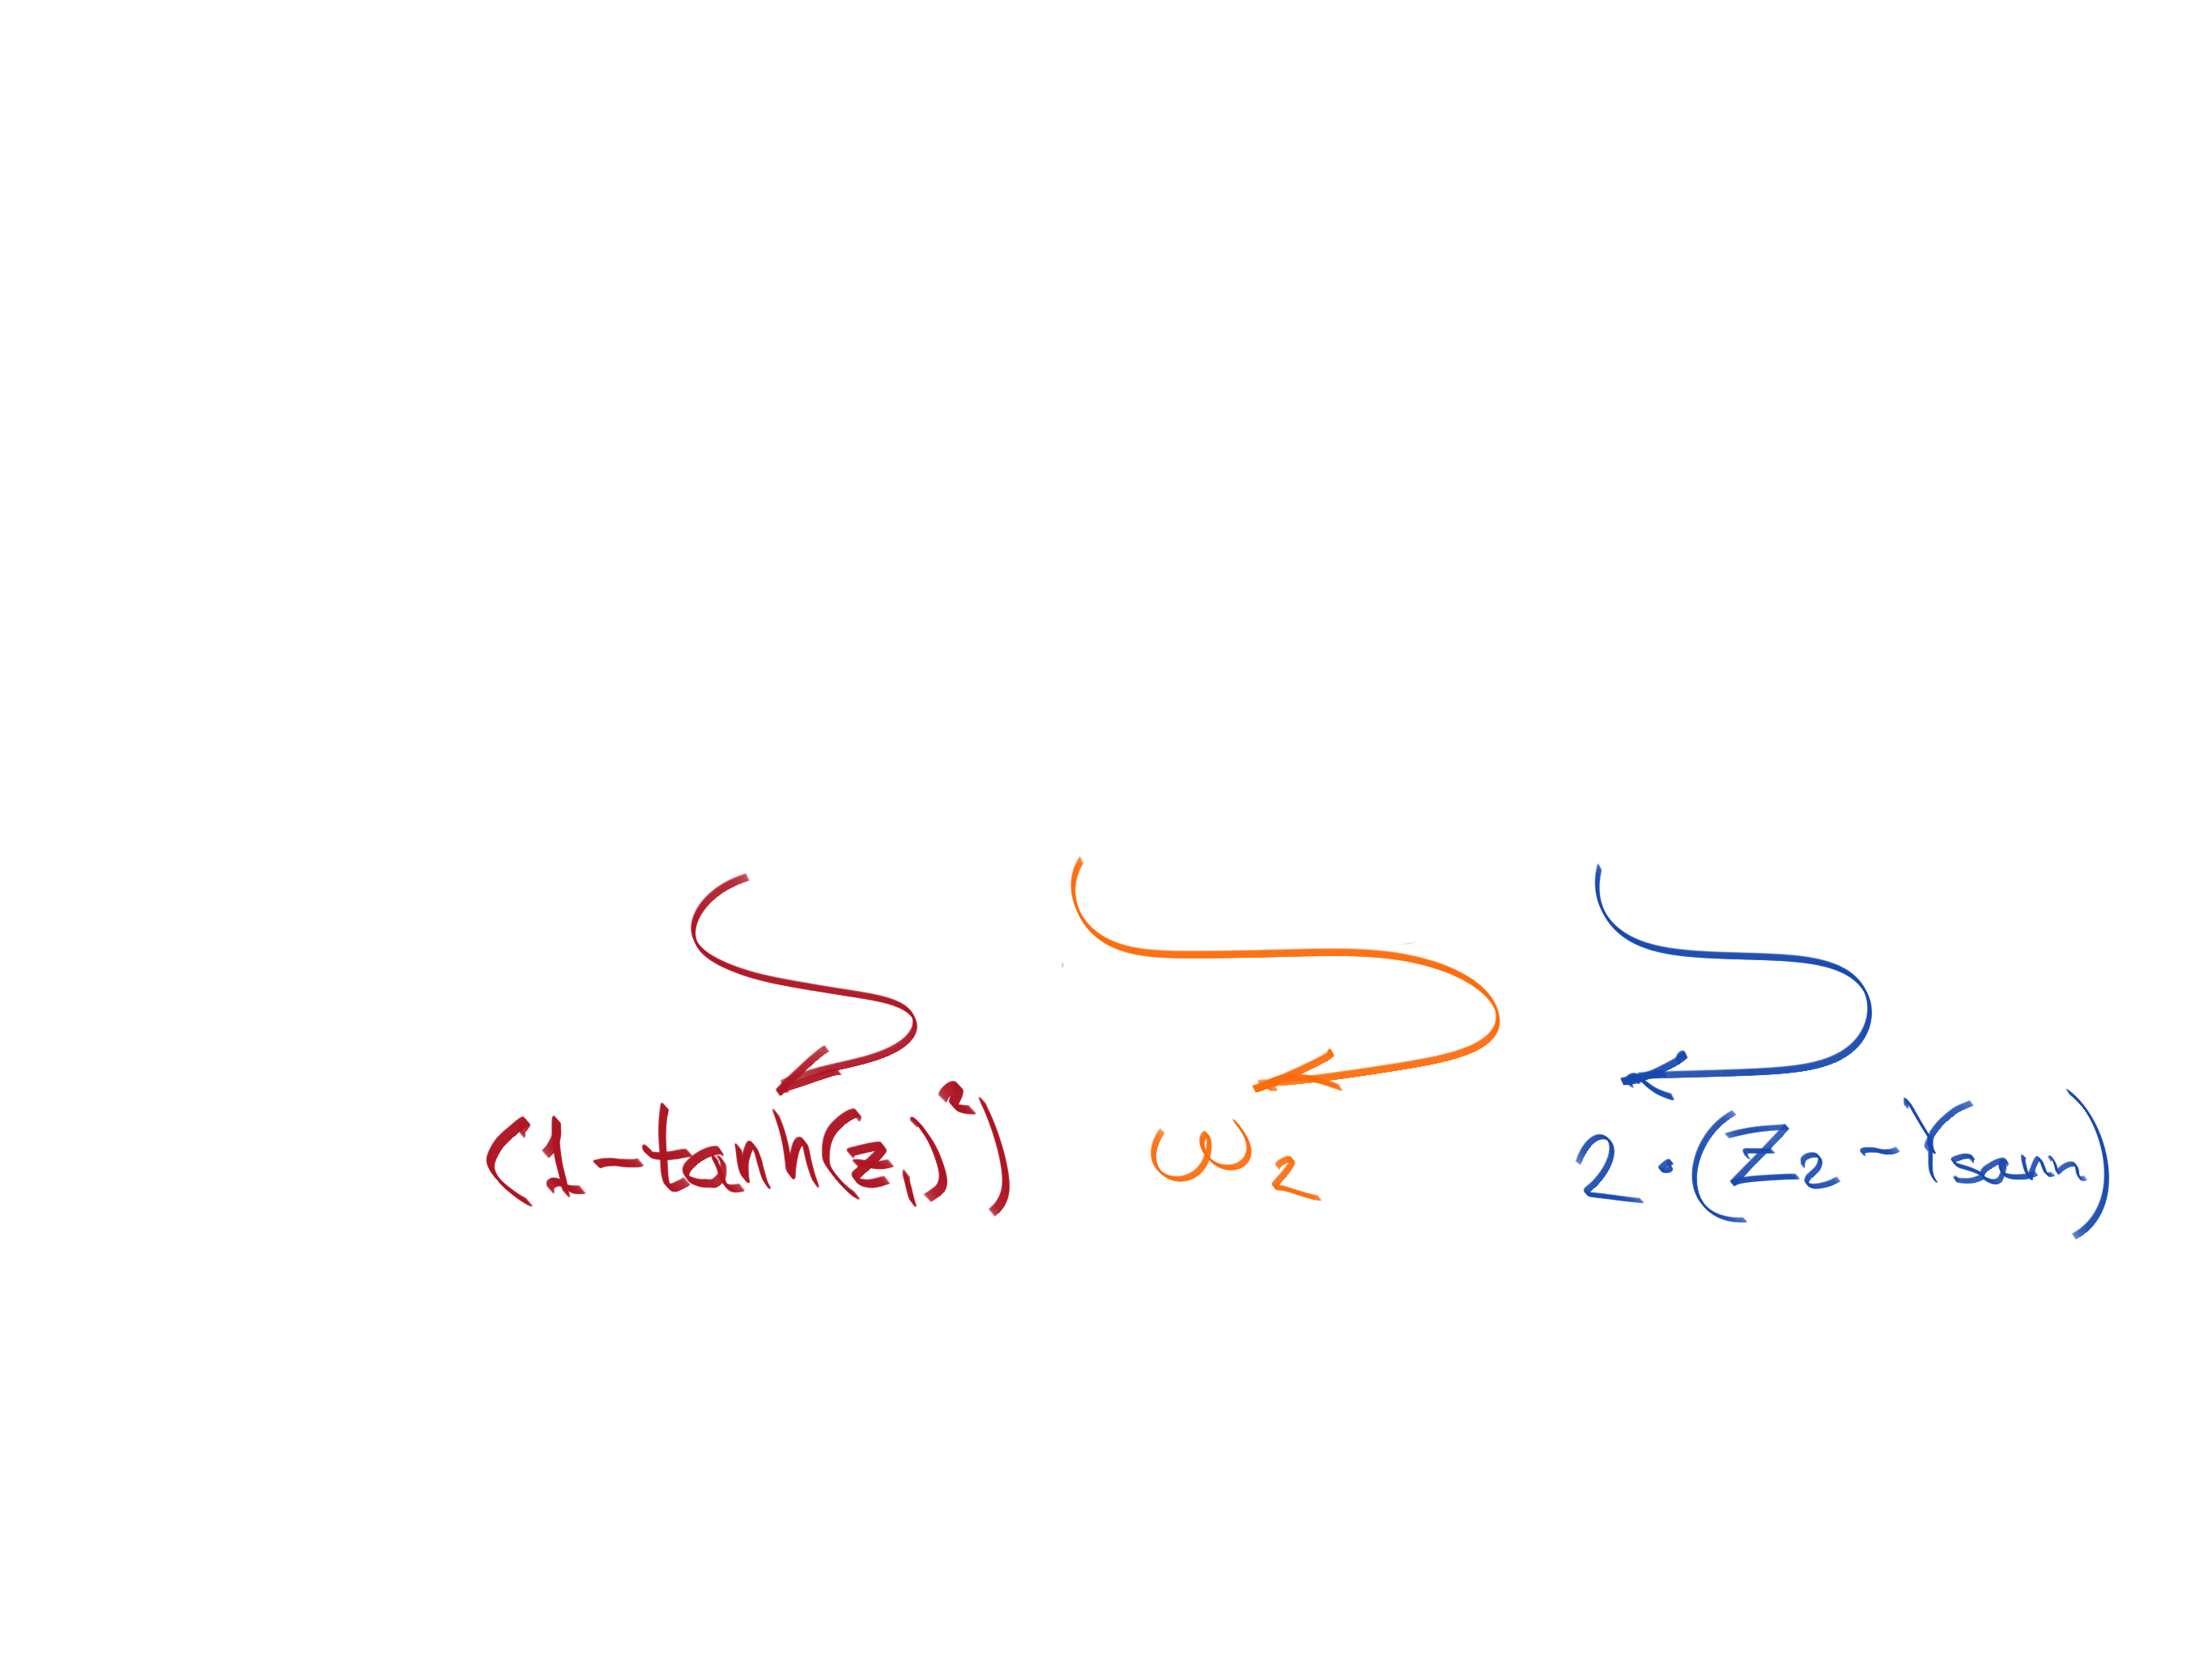 (1-tanh(z₁)²) ω₂ 2·(z₂-Ysoln)